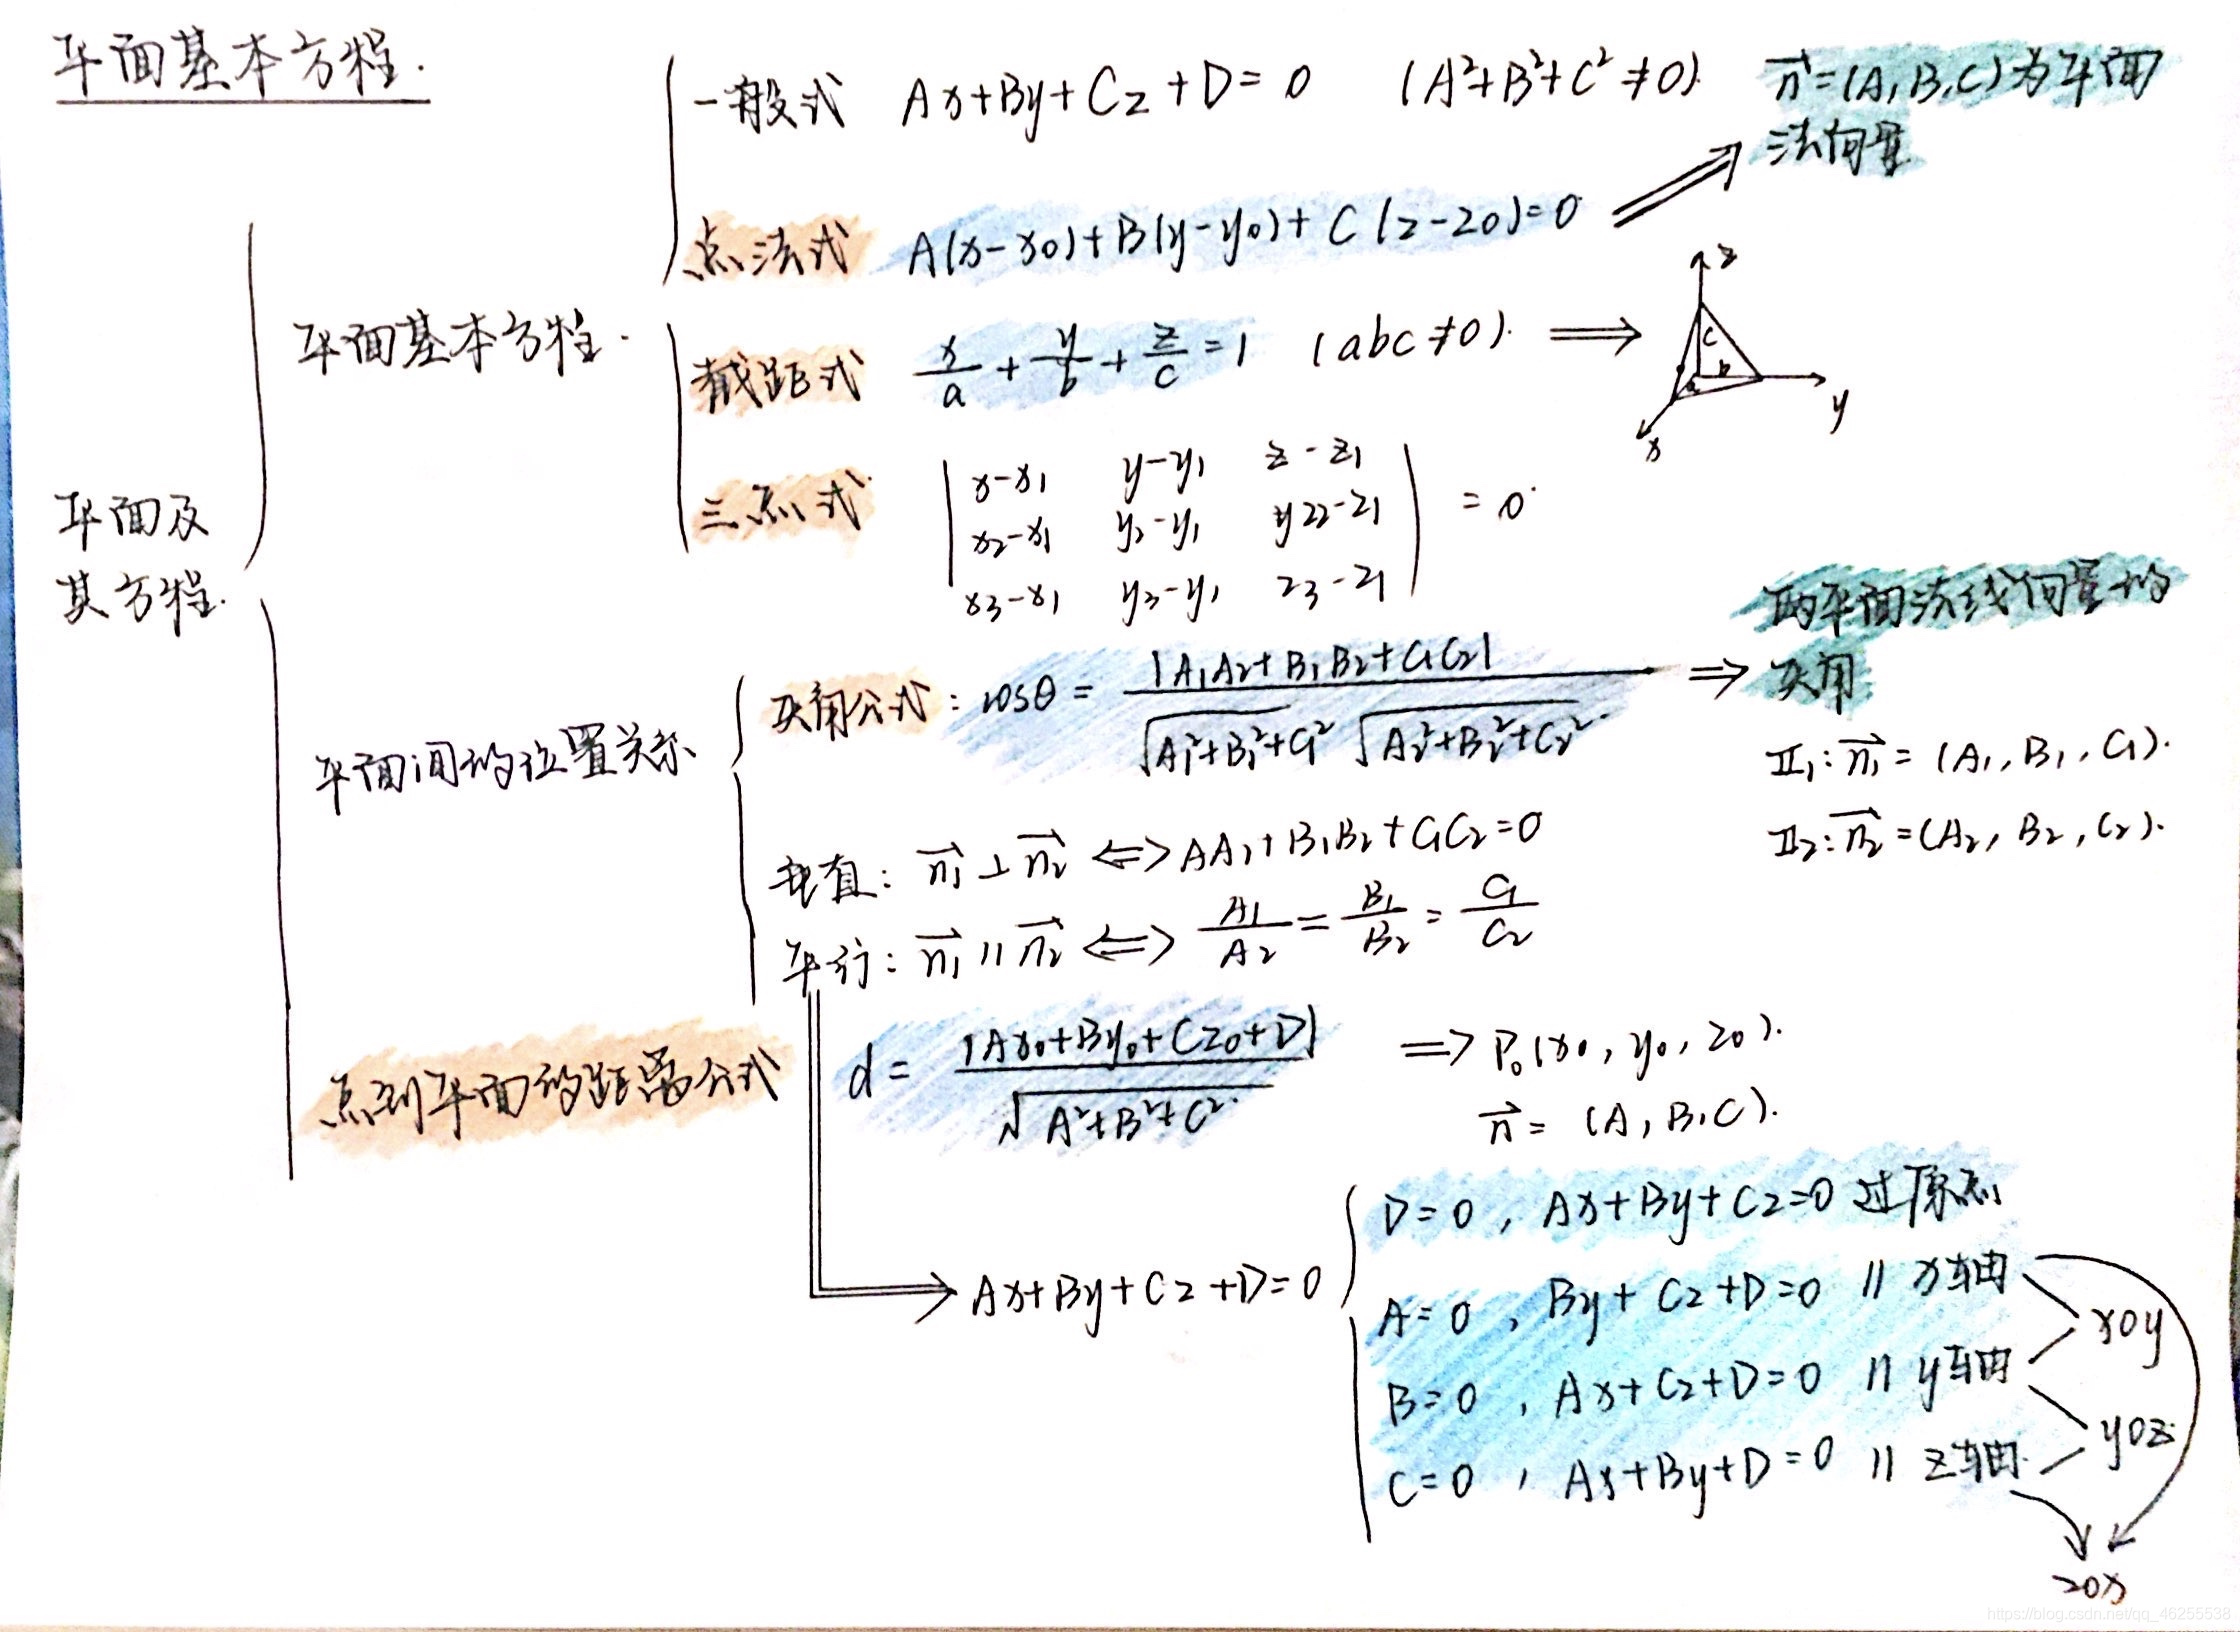 平面基本方程.
平面及
其方程.
平面基本方程.
一般式 Ax+By+Cz+D=0 (A²+B²+C²≠0). n⃗=(A,B,C)为平面
法向量
点法式 A(x-x0)+B(y-y0)+C(z-z0)=0
截距式 x/a + y/b + z/c = 1 (abc≠0). ⇒
z
c
b
a
y
x
三点式
| x-x1 y-y1 z-z1 |
| x2-x1 y2-y1 yz2-z1 | = 0
| x3-x1 y3-y1 z3-z1 |
平面间的位置关系
夹角公式: cosθ = |A1A2+B1B2+C1C2| / √A1²+B1²+C1² √A2²+B2²+C2² ⇒ 两平面法线向量的
夹角
Π1: n1⃗ = (A1, B1, C1).
Π2: n2⃗ = (A2, B2, C2).
垂直: n1⃗ ⊥ n2⃗ ⇔ AA2+B1B2+C1C2=0
平行: n1⃗ // n2⃗ ⇔ A1/A2 = B1/B2 = C1/C2
点到平面的距离公式 d = |Ax0+By0+Cz0+D| / √A²+B²+C² ⇒ P0(x0, y0, z0).
n⃗ = (A, B, C).
Ax+By+Cz+D=0
D=0, Ax+By+Cz=0 过原点
A=0, By+Cz+D=0 // x轴
B=0, Ax+Cz+D=0 // y轴
C=0, Ax+By+D=0 // z轴
xoy
yoz
zox
https://blog.csdn.net/qq_46255538